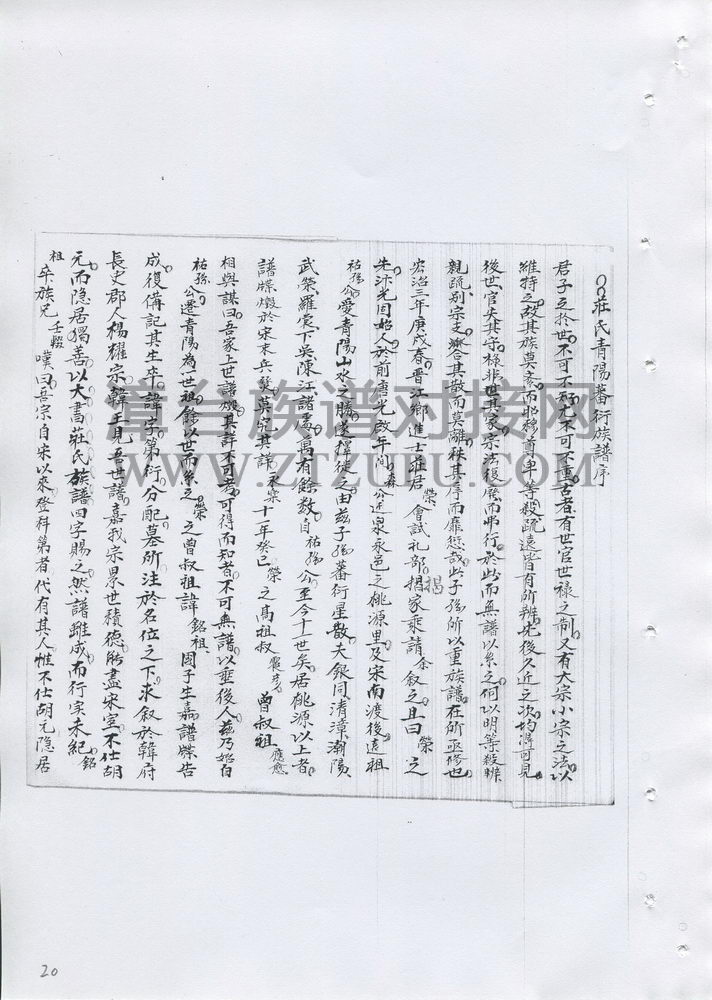 莊氏青陽蕃衍族譜序
君子立於世不可不配尤不可不重古者有世官世祿之制又有大宗小宗之法以
維持之故其族莫紊而昭穆尊卑等殺疏遠皆有所辨先後久近之次均得可見
後世官失其守祿非世其家宗法復廢而弗行於此而無譜以系之何以明等殺辨
親疏別宗支聚合其散而莫離秩其序而靡愆哉此子孫所以重族譜在所亟修也
宏治三年庚戌春晉江鄉進士莊君榮會試礼部揭家乘請余叙之且曰榮之
先汴光固始人於前唐光啟年間森公近泉永邑之桃源里及宋南渡後遠祖
祐孫公愛青陽山水之勝遂擇徙之由茲子孫蕃衍星散夫銀同清漳潮陽
武榮羅裳下吳陳江諸處萬有餘数自祐孫公至今十一世矣居桃源以上者
譜牒燬於宋末兵燹莫究其詳永樂十一年癸巳榮之高叔祖震彥曾叔祖應愈
相與謀曰吾家上世譜燬其詳不可考可得而知者不可無譜以垂後人茲乃始自
祐孫公遷青陽為一世祖餘以世而系之榮之曾叔祖諱銘祖因子生嘉譜牒告
成復備記其生卒諱字第衍分配墓所注於名位之下求叙於韓府
長史郡人楊耀宗韓王見吾世譜嘉我宗景世積德能盡宋室不仕胡
元而隐居獨善以大書莊氏族譜四字賜之然譜雖成而行实未紀銘
祖卒族兄壬輟嘆曰吾宗自宋以來登科第者代有其人惟不仕胡元隐居
20
章台族谱对接网
WWW.ZTZUPU.COM